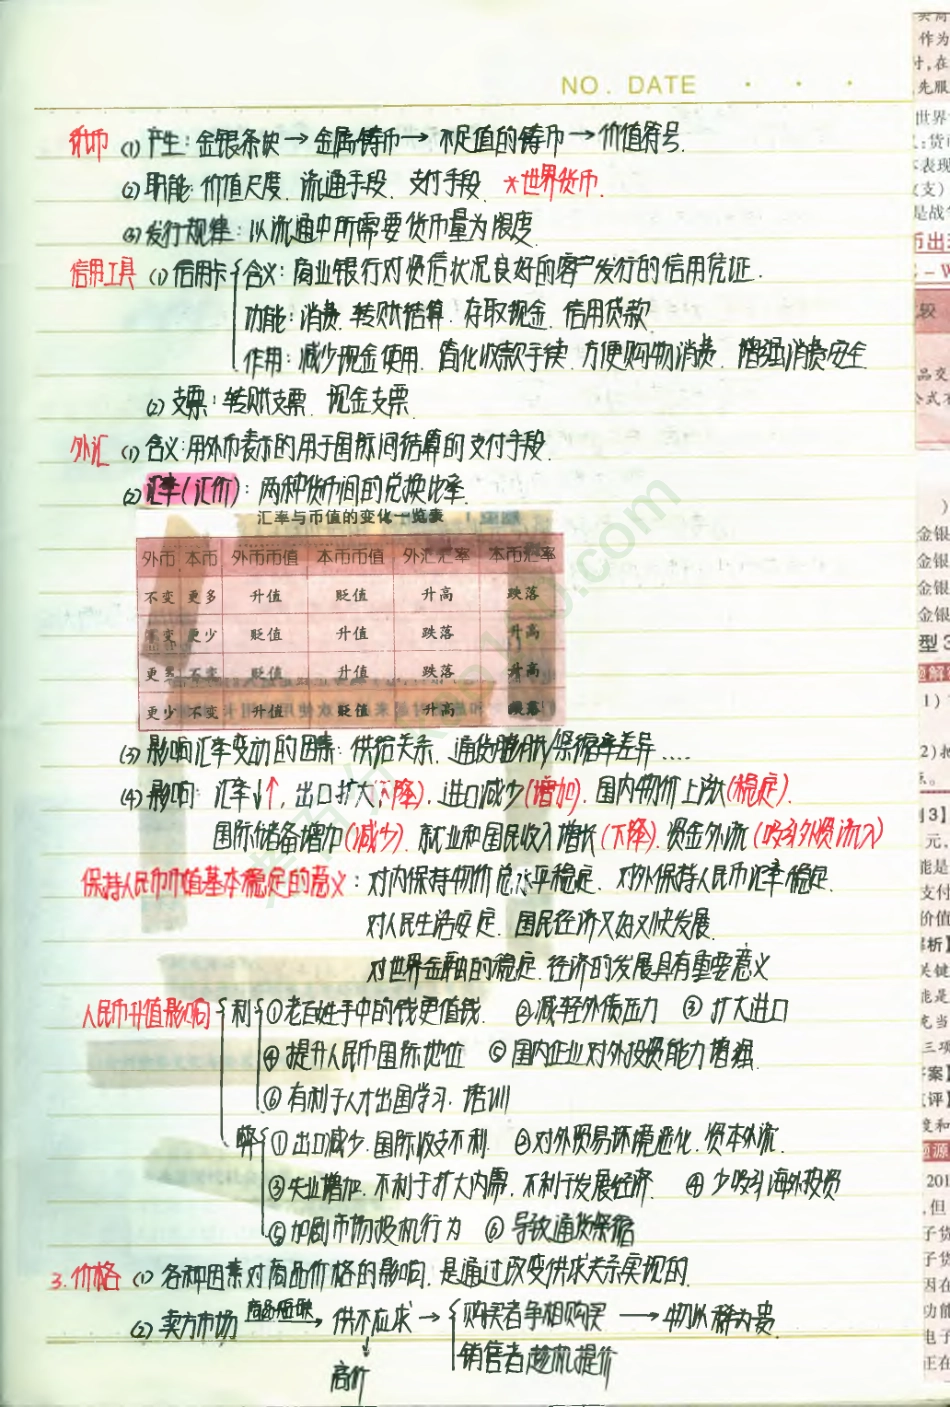 NO. DATE
纸币 (1) 产生: 金银条块 → 金属铸币 → 不足值的铸币 → 价值符号.
(2) 职能: 价值尺度. 流通手段. 支付手段. *世界货币.
(3) 发行规律: 以流通中所需要货币量为限度.
信用工具 (1) 信用卡 含义: 商业银行对资信状况良好的客户发行的信用凭证.
功能: 消费. 转账结算. 存取现金. 信用贷款.
作用: 减少现金使用. 简化收款手续. 方便购物消费. 增强消费安全.
(2) 支票: 转账支票. 现金支票.
外汇 (1) 含义: 用外币表示的用于国际间结算的支付手段.
(2) 汇率(汇价): 两种货币间的兑换比率.
汇率与币值的变化一览表
外币 本币 外币币值 本币币值 外汇汇率 本币汇率
不变 更多 升值 贬值 升高 跌落
不变 更少 贬值 升值 跌落 升高
更多 不变 贬值 升值 跌落 升高
更少 不变 升值 贬值 升高 跌落
(3) 影响汇率变动的因素: 供给关系. 通货膨胀/紧缩率差异....
(4) 影响: 汇率↓↑, 出口扩大(下降). 进口减少(增加). 国内物价上涨(稳定).
国际储备增加(减少). 就业和国民收入增长(下降). 资金外流(吸引外资流入)
保持人民币币值基本稳定的意义: 对内保持物价总水平稳定. 对外保持人民币汇率稳定.
对人民生活安定. 国民经济又好又快发展.
对世界金融的稳定. 经济的发展具有重要意义
人民币升值影响 利 ①老百姓手中的钱更值钱. ②减轻外债压力 ③扩大进口
④提升人民币国际地位 ⑤国内企业对外投资能力增强.
⑥有利于人才出国学习. 培训
弊 ①出口减少. 国际收支不利. ②对外贸易环境恶化. 资本外流.
③失业增加. 不利于扩大内需. 不利于发展经济. ④少吸引海外投资
⑤加剧市场投机行为 ⑥导致通货紧缩
3. 价格 (1) 各种因素对商品价格的影响. 是通过改变供求关系实现的.
(2) 卖方市场 商品短缺 → 供不应求 → 购买者争相购买 → 物以稀为贵.
销售者趁机提价
高价